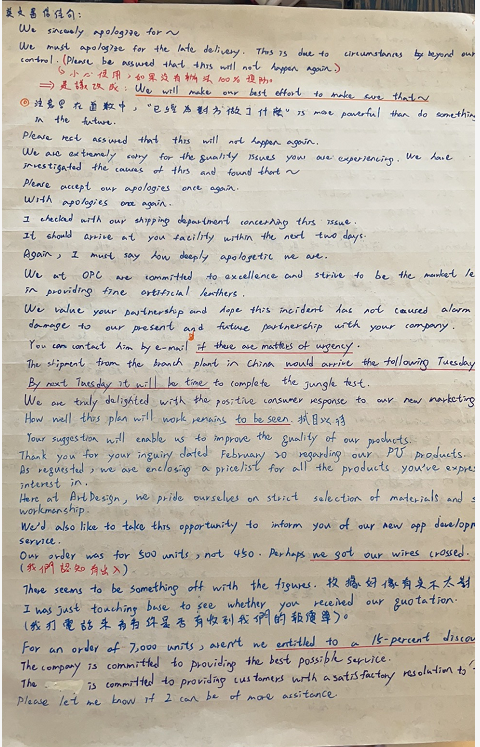 英文書信佳句:
We sincerely apologize for ~
We must apologize for the late delivery. This is due to circumstances beyond our
control. (Please be assured that this will not happen again.)
小心使用, 如果沒有辦法100%預防
⇒ 建議改成: We will make our best effort to make sure that ~
注意! 在道歉中, "已經為對方做了什麼" is more powerful than do something
in the future.
Please rest assured that this will not happen again.
We are extremely sorry for the quality issues you are experiencing. We have
investigated the causes of this and found that ~
Please accept our apologies once again.
With apologies once again.
I checked with our shipping department concerning this issue.
It should arrive at you facility within the next two days.
Again, I must say how deeply apologetic we are.
We at OPC are committed to excellence and strive to be the market le
in providing fine artificial leathers.
We value your partnership and hope this incident has not caused alarm
damage to our present and future partnership with your company.
You can contact him by e-mail if there are matters of urgency.
The shipment from the branch plant in China would arrive the following Tuesday
By next Tuesday it will be time to complete the jungle test.
We are truly delighted with the positive consumer response to our new marketing
How well this plan will work remains to be seen. 拭目以待
Your suggestion will enable us to improve the quality of our products.
Thank you for your inquiry dated February 20 regarding our PU products.
As requested, we are enclosing a pricelist for all the products you've expre
interest in.
Here at ArtDesign, we pride ourselves on strict selection of materials and s
workmanship.
We'd also like to take this opportunity to inform you of our new app developm
service.
Our order was for 500 units, not 450. Perhaps we got our wires crossed.
(我們認知有出入).
There seems to be something off with the figures. 數據好像有些不太對
I was just touching base to see whether you received our quotation.
(我打電話來看看你是否有收到我們的報價單)。
For an order of 7,000 units, aren't we entitled to a 15-percent discou
The company is committed to providing the best possible service.
The is committed to providing customers with a satisfactory resolution to
Please let me know if I can be of more assitance.